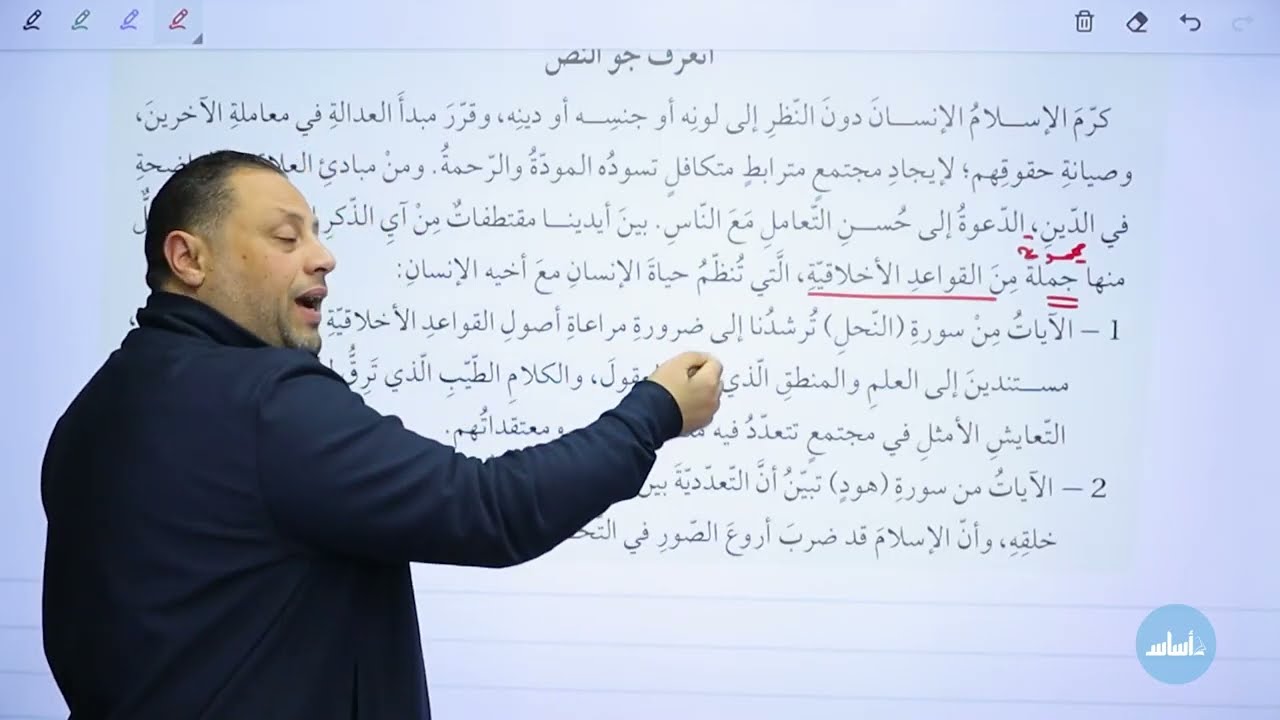 أتعرف جو النص
كرّمَ الإسلامُ الإنسانَ دونَ النّظرِ إلى لونِه أو جنسِه أو دينِه، وقرّرَ مبدأَ العدالةِ في معاملةِ الآخرينَ،
وصيانةِ حقوقِهم؛ لإيجادِ مجتمعٍ مترابطٍ متكافلٍ تسودُه المودّةُ والرّحمةُ. ومنْ مبادئِ
في الدّينِ، الدّعوةُ إلى حُسنِ التّعاملِ مَعَ النّاسِ. بينَ أيدينا مقتطفاتٌ مِنْ آيِ الذّكرِ
منها جملة مِنَ القواعدِ الأخلاقيّةِ، الَّتي تُنظّمُ حياةَ الإنسانِ معَ أخيه الإنسانِ:
1 – الآياتُ مِنْ سورةِ (النّحلِ) تُرشدُنا إلى ضرورةِ مراعاةِ أصولِ القواعدِ الأخلاقيّة
مستندينَ إلى العلمِ والمنطقِ الّذي العقولَ، والكلامِ الطّيّبِ الّذي تَرِقُّ
التّعايشِ الأمثلِ في مجتمعٍ تتعدّدُ فيه ومعتقداتُهم.
2 – الآياتُ من سورةِ (هودٍ) تبيّنُ أنَّ التّعدّديّةَ بين
خلقِهِ، وأنّ الإسلامَ قد ضربَ أروعَ الصّورِ في
أساس